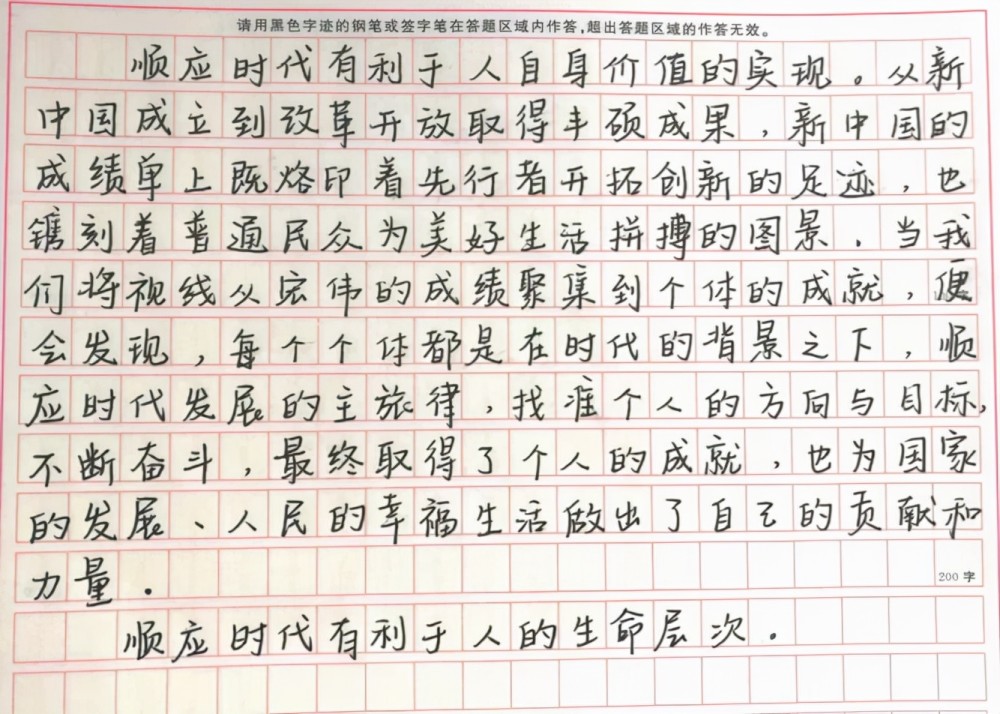 请用黑色字迹的钢笔或签字笔在答题区域内作答,超出答题区域的作答无效。
顺应时代有利于人自身价值的实现。从新
中国成立到改革开放取得丰硕成果,新中国的
成绩单上既烙印着先行者开拓创新的足迹,也
镌刻着普通民众为美好生活拼搏的图景.当我
们将视线从宏伟的成绩聚集到个体的成就,便
会发现,每个个体都是在时代的背景之下,顺
应时代发展的主旅律,找准个人的方向与目标,
不断奋斗,最终取得了个人的成就,也为国家
的发展、人民的幸福生活做出了自己的贡献和
力量.
200 字
顺应时代有利于人的生命层次.